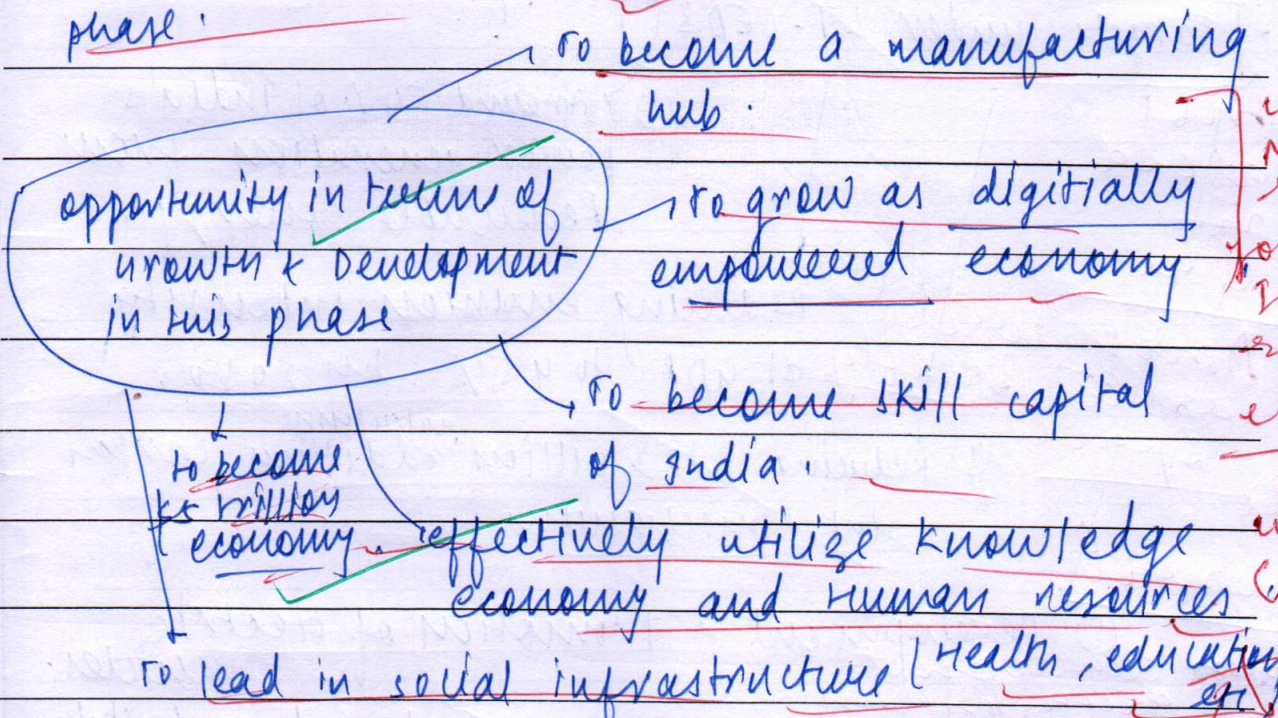 phase.
To become a manufacturing
hub.
opportunity in terms of
growth & Development
in this phase
To grow as digitially
empowered economy
To become skill capital
of India.
to become
$5 trillion
economy.
effectively utilize knowledge
economy and Human resources.
To lead in social infrastructure (Health, education
etc)